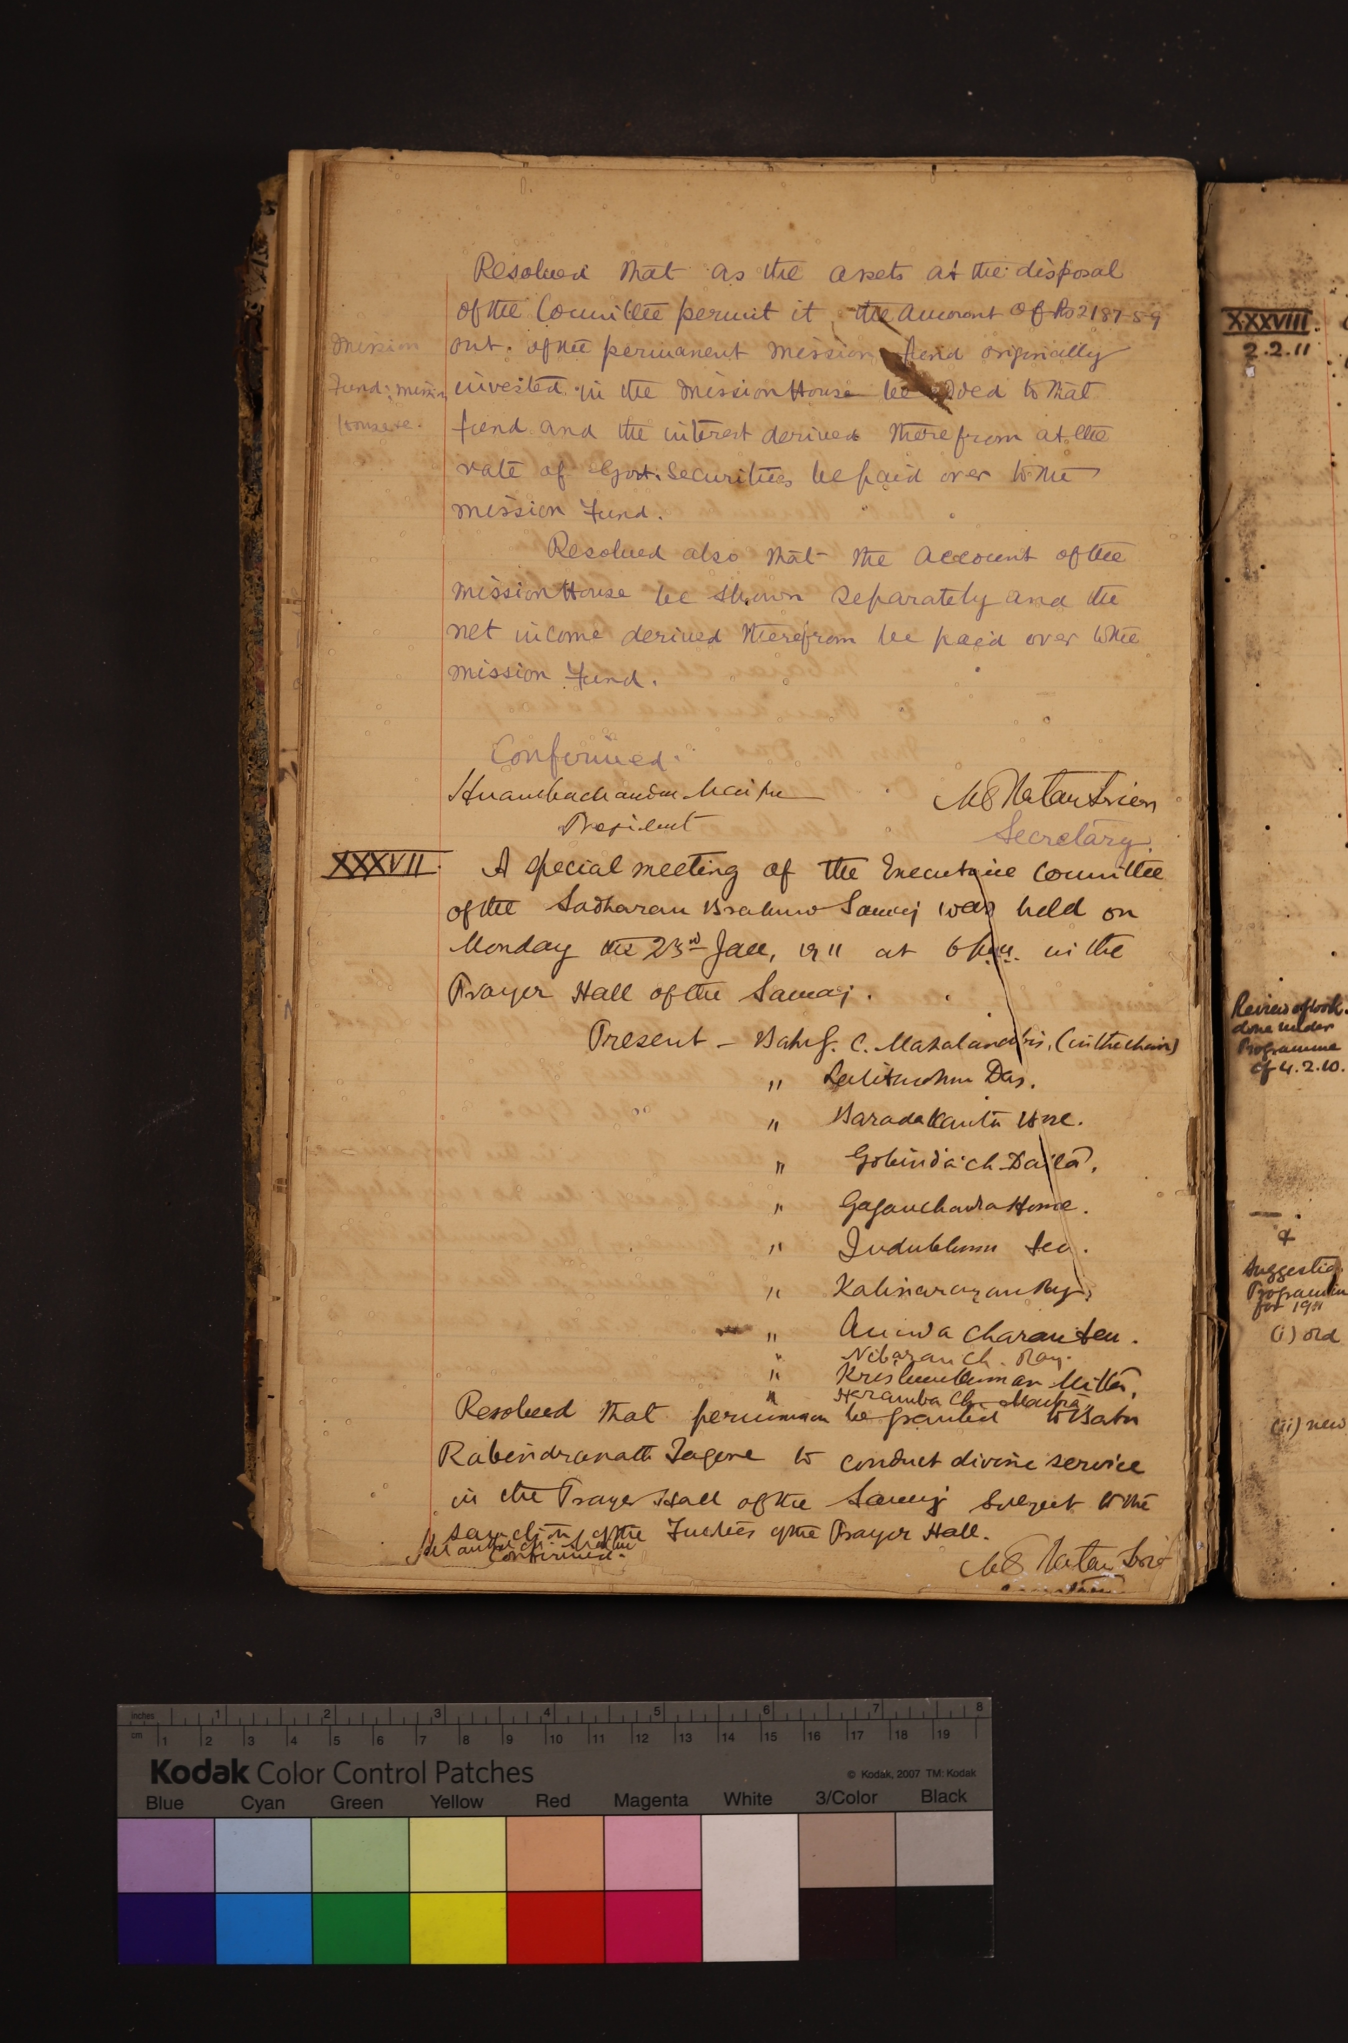 Resolved that as the assets at the disposal
of the Committee permit it, the amount of Rs 2187-5-9
Mission
out of the permanent mission fund originally
Fund: mission
invested in the Mission House be added to that
House
fund and the interest derived therefrom at the
rate of Govt. Securities be paid over to the
mission Fund.
Resolved also that the account of the
mission House be shown separately and the
net income derived therefrom be paid over to the
mission Fund.
Confirmed.
Herambachandra Maitra
President
Secretary.
XXXVII. A special meeting of the Executive Committee
of the Sadharan Brahmo Samaj was held on
Monday the 23rd Jan, 1911 at 6 p.m. in the
Prayer Hall of the Samaj.
Present – Babu G. C. Mahalanobis, (in the chair)
" Lalitmohun Das.
" Baradakanta Bose.
" Gobinda Ch. Datta.
" Gaganchandra Home.
" Indubhusan Sen.
" Kalinarayan Ray,
" Annada Charan Sen.
" Nibaran Ch. Ray.
" Krishnakumar Mitra,
" Heramba Ch. Maitra
Resolved that permission be granted to Babu
Rabindranath Tagore to conduct divine service
in the Prayer Hall of the Samaj subject to the
sanction of the Trustees of the Prayer Hall.
Confirmed.
XXXVIII.
2.2.11
Review of work
done under
Programme
of 4.2.10.
&
Suggestion
Programme
for 1911
(i) old
(ii) new
inches 1 2 3 4 5 6 7 8
cm 1 2 3 4 5 6 7 8 9 10 11 12 13 14 15 16 17 18 19
Kodak Color Control Patches
© Kodak, 2007 TM: Kodak
Blue Cyan Green Yellow Red Magenta White 3/Color Black